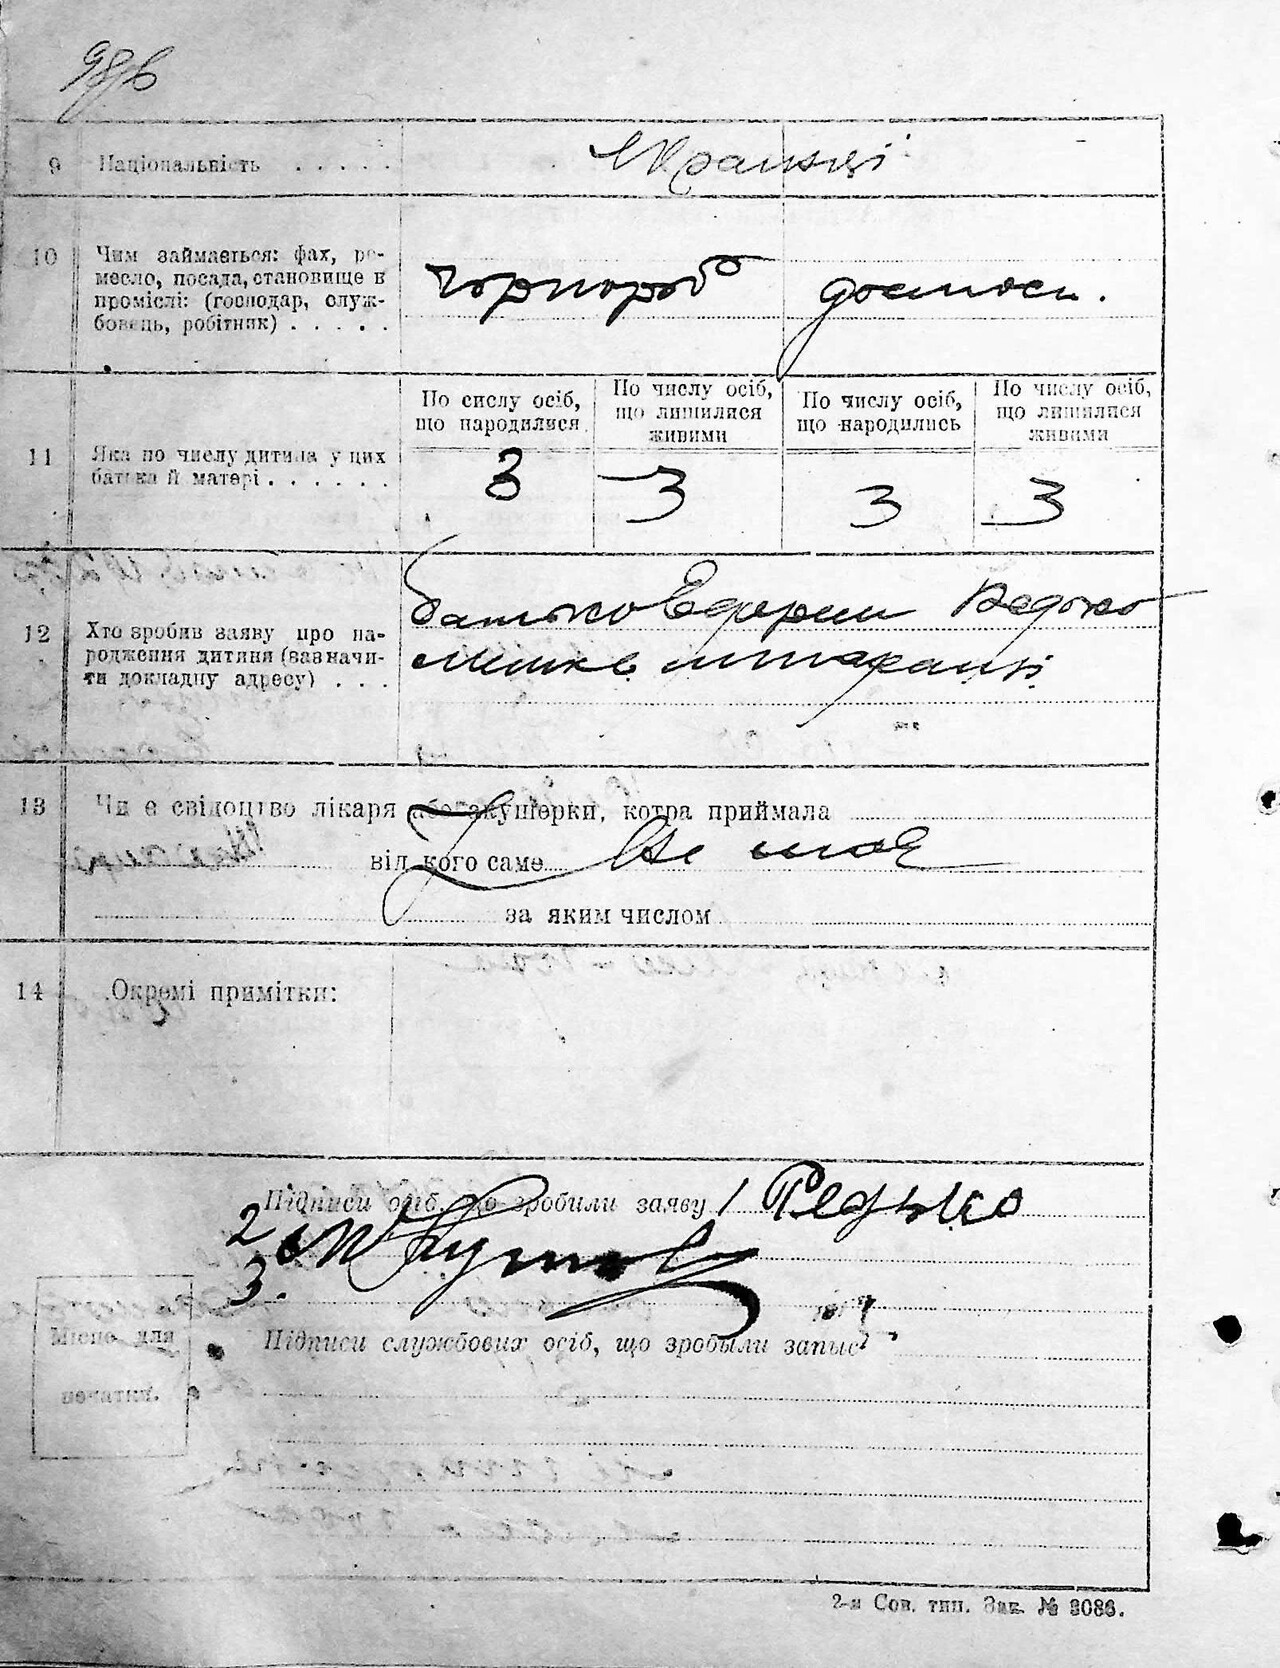 98/в
9 Національність . . . . . Українці
10 Чим займається: фах, ре-
месло, посада, становище в
проміслі: (господар, служ-
бовець, робітник) . . . . .
чорнороб домогосп.
По числу осіб,
що народилися
По числу осіб,
що лишилися
живими
По числу осіб,
що народились
По числу осіб,
що лишилися
живими
11 Яка по числу дитина у цих
батька й матері . . . . . .
3 3 3 3
12 Хто зробив заяву про на-
родження дитини (вазначи-
ти докладну адресу) . . .
батько Редько
мешк в
13 Чи є свідоцтво лікаря або акушерки, котра приймала
від кого саме Не має
за яким числом
14 Окремі примітки:
Підписи осіб, що зробили заяву 1 Редько
2
3.
Місце для
печатки.
Підписи службових осіб, що зробыли запыс
2-я Сов. тип. Зак. № 3086.